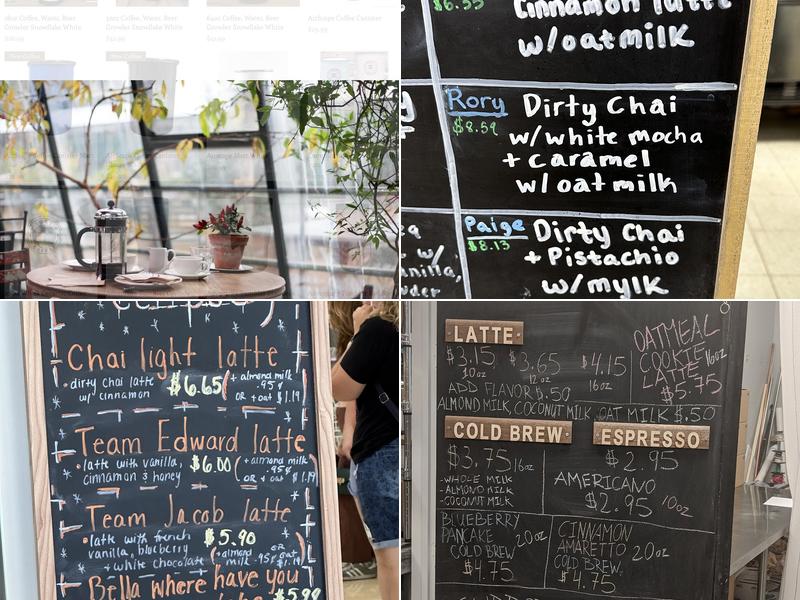 Growler Snowflake White
Growler Snowflake White
Growler Snowflake White
$6.55
cinnamon latte
w/oatmilk
Rory Dirty Chai
$8.59
w/white mocha
+ caramel
w/ oatmilk
Paige Dirty Chai
$8.13
+ Pistachio
w/mylk
w/
anilla,
wder
Chai light latte
•dirty chai latte
w/ cinnamon
$6.65
(+ almond milk
.95¢
OR +oat $1.19)
Team Edward latte
•latte with vanilla,
cinnamon & honey
$6.00
(+almond milk
.95¢
OR + oat $1.19
Team Jacob latte
•latte with french
vanilla, blueberry
+white chocolate
$5.90
(+almond
milk .95¢
OR
oat
$1.19
Bella where have you
$5.99
LATTE
$3.15
10oz
$3.65
12oz
$4.15
16oz
ADD FLAVOR $.50
ALMOND MILK, COCONUT MILK, OAT MILK $.50
OATMEAL
COOKIE 16oz
LATTE
$5.75
COLD BREW
$3.75 16oz
-WHOLE MILK
-ALMOND MILK
-COCONUT MILK
ESPRESSO
$2.95
AMERICANO
$2.95 10oz
BLUEBERRY
PANCAKE 20oz
COLD BREW
$4.75
CINNAMON
AMARETTO 20oz
COLD BREW
$4.75